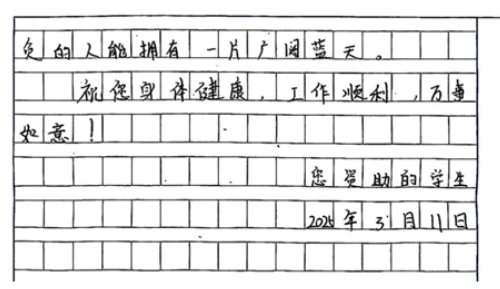 负的人能拥有一片广阔蓝天。
祝您身体健康，工作顺利，万事
如意！
您资助的学生
2025年3月11日